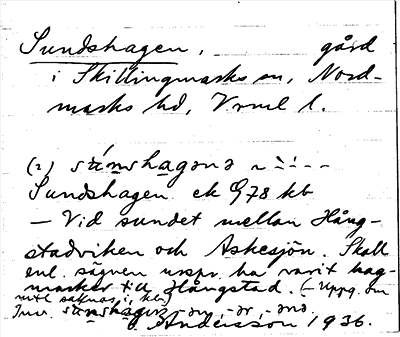 Sundshagen, gård
i Skillingmarks sn, Nord-
marks hd, Vrml l.
(2) súnshagənə
Sundshagen ek G78 kb
— Vid sundet mellan Hång-
stadviken och Askesjön. Skall
enl. sägnen urspr. ha varit hag-
marker till Hångstad. (– Uppg. om
mtl saknas i kb)
Inv. -ər, -ənə
Andersson 1936.